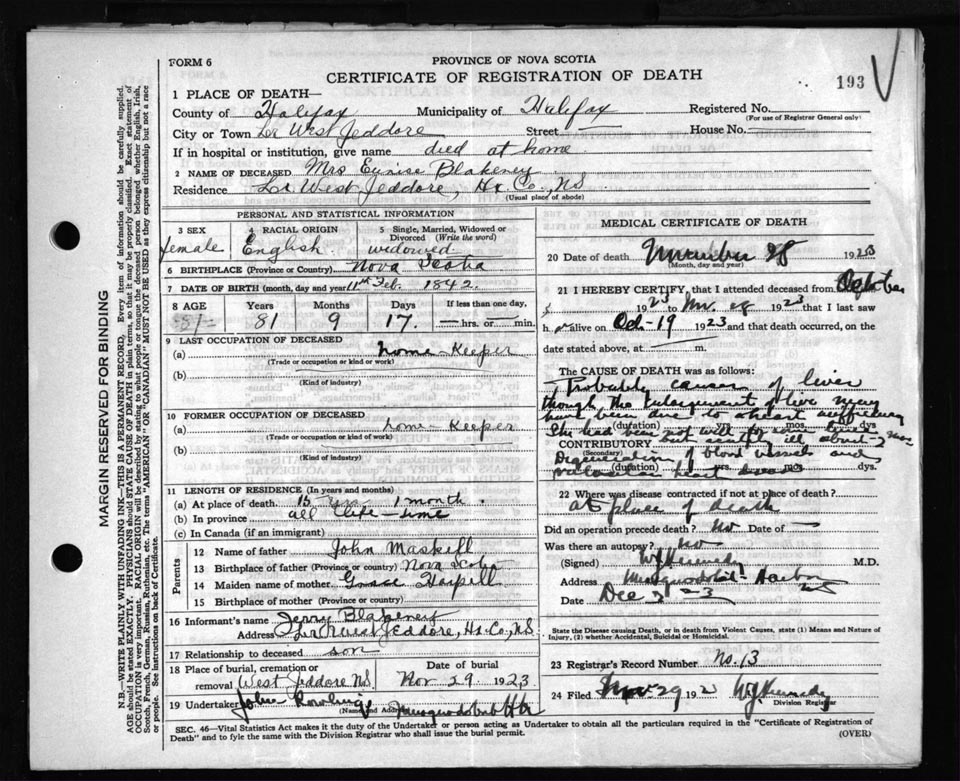 FORM 6
PROVINCE OF NOVA SCOTIA
CERTIFICATE OF REGISTRATION OF DEATH
193
1 PLACE OF DEATH—
County of Halifax Municipality of Halifax Registered No.
(For use of Registrar General only)
City or Town Lr West Jeddore Street — House No. —
If in hospital or institution, give name died at home
2 NAME OF DECEASED Mrs Eunise Blakeney
Residence Lr West Jeddore, Hx. Co., NS
(Usual place of abode)
PERSONAL AND STATISTICAL INFORMATION
3 SEX
female
4 RACIAL ORIGIN
English
5 Single, Married, Widowed or Divorced (Write the word)
widowed
6 BIRTHPLACE (Province or Country) Nova Scotia
7 DATE OF BIRTH (month, day and year) 11th Feb. 1842.
8 AGE Years Months Days If less than one day,
81 81 9 17. — hrs. or — min.
9 LAST OCCUPATION OF DECEASED
(a) home-Keeper
(Trade or occupation or kind or work)
(b)
(Kind of industry)
10 FORMER OCCUPATION OF DECEASED
(a) home-Keeper
(Trade or occupation or kind of work)
(b)
(Kind of industry)
11 LENGTH OF RESIDENCE (In years and months)
(a) At place of death 15 yrs 1 month.
(b) In province all Life-time
(c) In Canada (if an immigrant)
Parents
12 Name of father John Maskill
13 Birthplace of father (Province or country) Nova Scotia
14 Maiden name of mother Grace Harpell
15 Birthplace of mother (Province or country)
16 Informant's name Jerry Blakeney
Address Lr West Jeddore, Hx. Co., NS.
17 Relationship to deceased son
18 Place of burial, cremation or removal West Jeddore NS
Date of burial
Nov 29 1923
19 Undertaker John Rowlings Musquodoboit Hbr
(Name and Address)
MEDICAL CERTIFICATE OF DEATH
20 Date of death November 28 1923
(Month, day and year)
21 I HEREBY CERTIFY, that I attended deceased from
1923 to Nov 28 1923 that I last saw
h alive on Oct-19 1923 and that death occurred, on
date stated above, at — m.
The CAUSE OF DEATH was as follows:
Probably cancer of liver
though the enlargement of liver may
have been due to heart
(duration) yrs. mos. dys
She had been not well for some time
but acutely ill about 2 mos
CONTRIBUTORY
(Secondary)
Degeneration of blood vessels and
heart
(duration) mos dys.
22 Where was disease contracted if not at place of death?
At place of death
Did an operation precede death? No Date of —
Was there an autopsy? No
(Signed) WJ Kennedy M.D.
Address Musquodoboit Harbor
Date Dec 3 - 23
State the Disease causing Death, or in death from Violent Causes, state (1) Means and Nature of Injury, (2) whether Accidental, Suicidal or Homicidal.
23 Registrar's Record Number No. 13
24 Filed Nov 29 192 WJ Kennedy
Division Registrar
SEC. 46—Vital Statistics Act makes it the duty of the Undertaker or person acting as Undertaker to obtain all the particulars required in the "Certificate of Registration of
Death" and to fyle the same with the Division Registrar who shall issue the burial permit.
(OVER)
MARGIN RESERVED FOR BINDING
N.B.—WRITE PLAINLY WITH UNFADING INK—THIS IS A PERMANENT RECORD, Every item of information should be carefully supplied.
AGE should be stated EXACTLY. PHYSICIANS should STATE CAUSE OF DEATH in plain terms, so that it may be properly classified. Exact statement of
OCCUPATION is very important. RACIAL ORIGIN will be described by stating to what people or tongue the deceased person belonged whether English, Irish,
Scotch, French, German, Russian, Ruthenian, etc. The terms "AMERICAN" or "CANADIAN" MUST NOT BE USED as they express citizenship but not a race
or people. See instructions on back of Certificate.